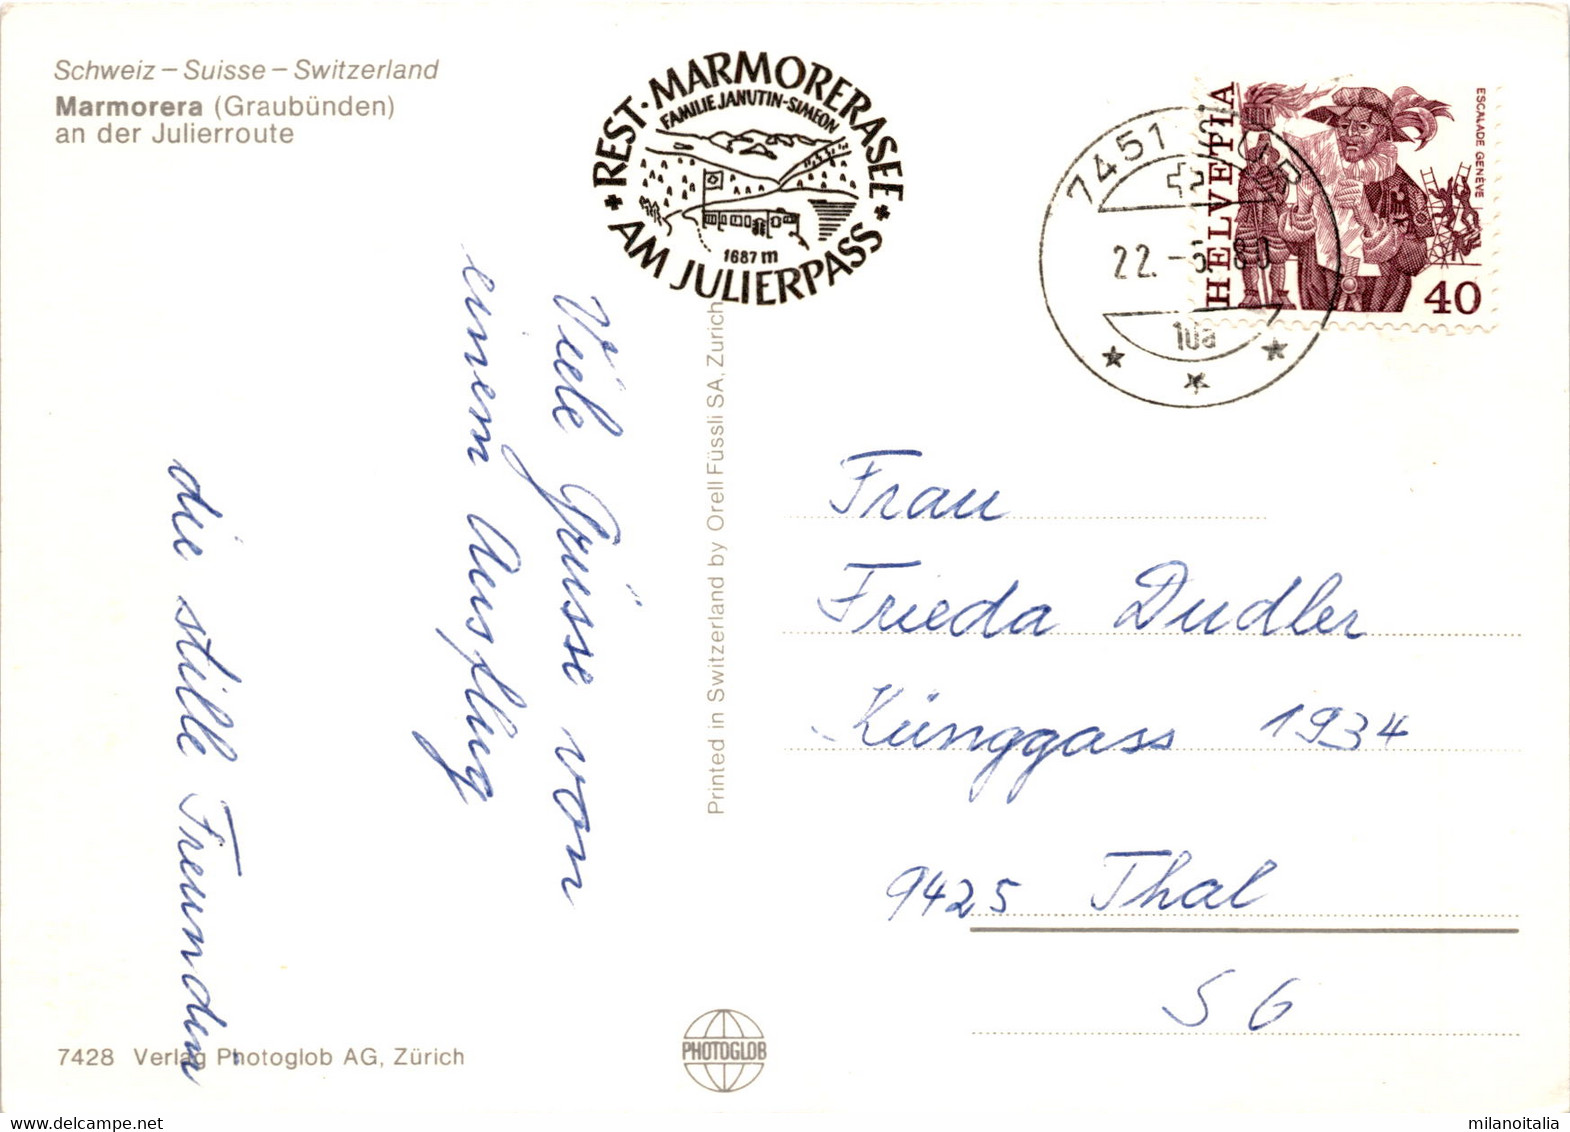 Schweiz – Suisse – Switzerland
Marmorera (Graubünden)
an der Julierroute
REST. MARMORERASEE
FAMILIE JANUTIN-SIMEON
1687 m
AM JULIERPASS
7451
22. -5. 80
10a
HELVETIA
ESCALADE GENÈVE
40
Viele Grüsse von
einem Ausflug
die stille Freundin
Printed in Switzerland by Orell Füssli SA, Zürich
Frau
Frieda Dudler
Künggass 1934
9425 Thal
SG
7428 Verlag Photoglob AG, Zürich
PHOTOGLOB
milanoitalia